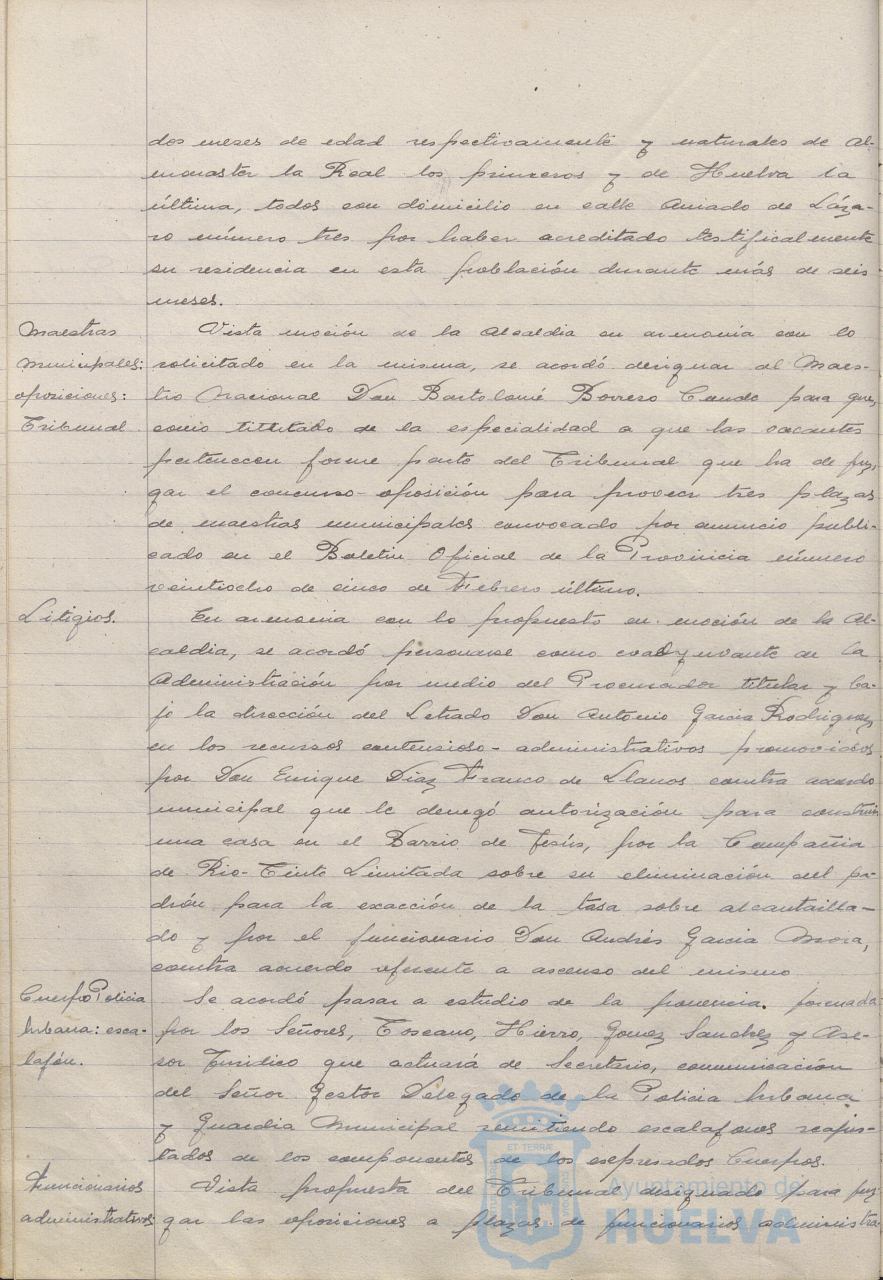 dos meses de edad respectivamente y naturales de Al-
monaster la Real los primeros y de Huelva la
última, todos con domicilio en calle Amado de Láza-
ro número tres por haber acreditado testificalmente
su residencia en esta población durante más de seis
meses.
Maestras
municipales:
oposiciones:
Tribunal
Vista moción de la Alcaldia en armonia con lo
solicitado en la misma, se acordó designar al Maes-
tro Nacional Don Bartolomé Borrero Cando para que,
como titulado de la especialidad a que las vacantes
pertenecen forme parte del Tribunal que ha de juz-
gar el concurso-oposición para proveer tres plazas
de maestras municipales convocado por anuncio publi-
cado en el Boletin Oficial de la Provincia número
veintiocho de cinco de Febrero último.
Litigios.
En armonia con lo propuesto en moción de la Al-
caldia, se acordó personarse como coadyuvante de la
Administración por medio del Procurador titular y ba-
jo la dirección del Letrado Don Antonio Garcia Rodriguez
en los recursos contensioso-administrativos promovidos
por Don Enrique Diaz Franco de Llanos contra acuerdo
municipal que le denegó autorización para construir
una casa en el Barrio de Jesús, por la Compañia
de Rio-Tinto Limitada sobre su eliminación del pa-
drón para la exacción de la tasa sobre alcantarilla-
do y por el funcionario Don Andrés Garcia Mora,
contra acuerdo referente a ascenso del mismo
Cuerpo Policia
Urbana: esca-
lafón.
Se acordó pasar a estudio de la ponencia formada
por los Señores, Toscano, Hierro, Gomez Sanchez y Ase-
sor Juridico que actuará de Secretario, comunicación
del Señor Gestor Delegado de la Policia Urbana
y Guardia Municipal remitiendo escalafones reajus-
tados de los componentes de los expresados Cuerpos.
Funcionarios
administrativos
Vista propuesta del Tribunal designado para juz-
gar las oposiciones a plazas de funcionarios administra-
ET TERRÆ
Ayuntamiento de
HUELVA